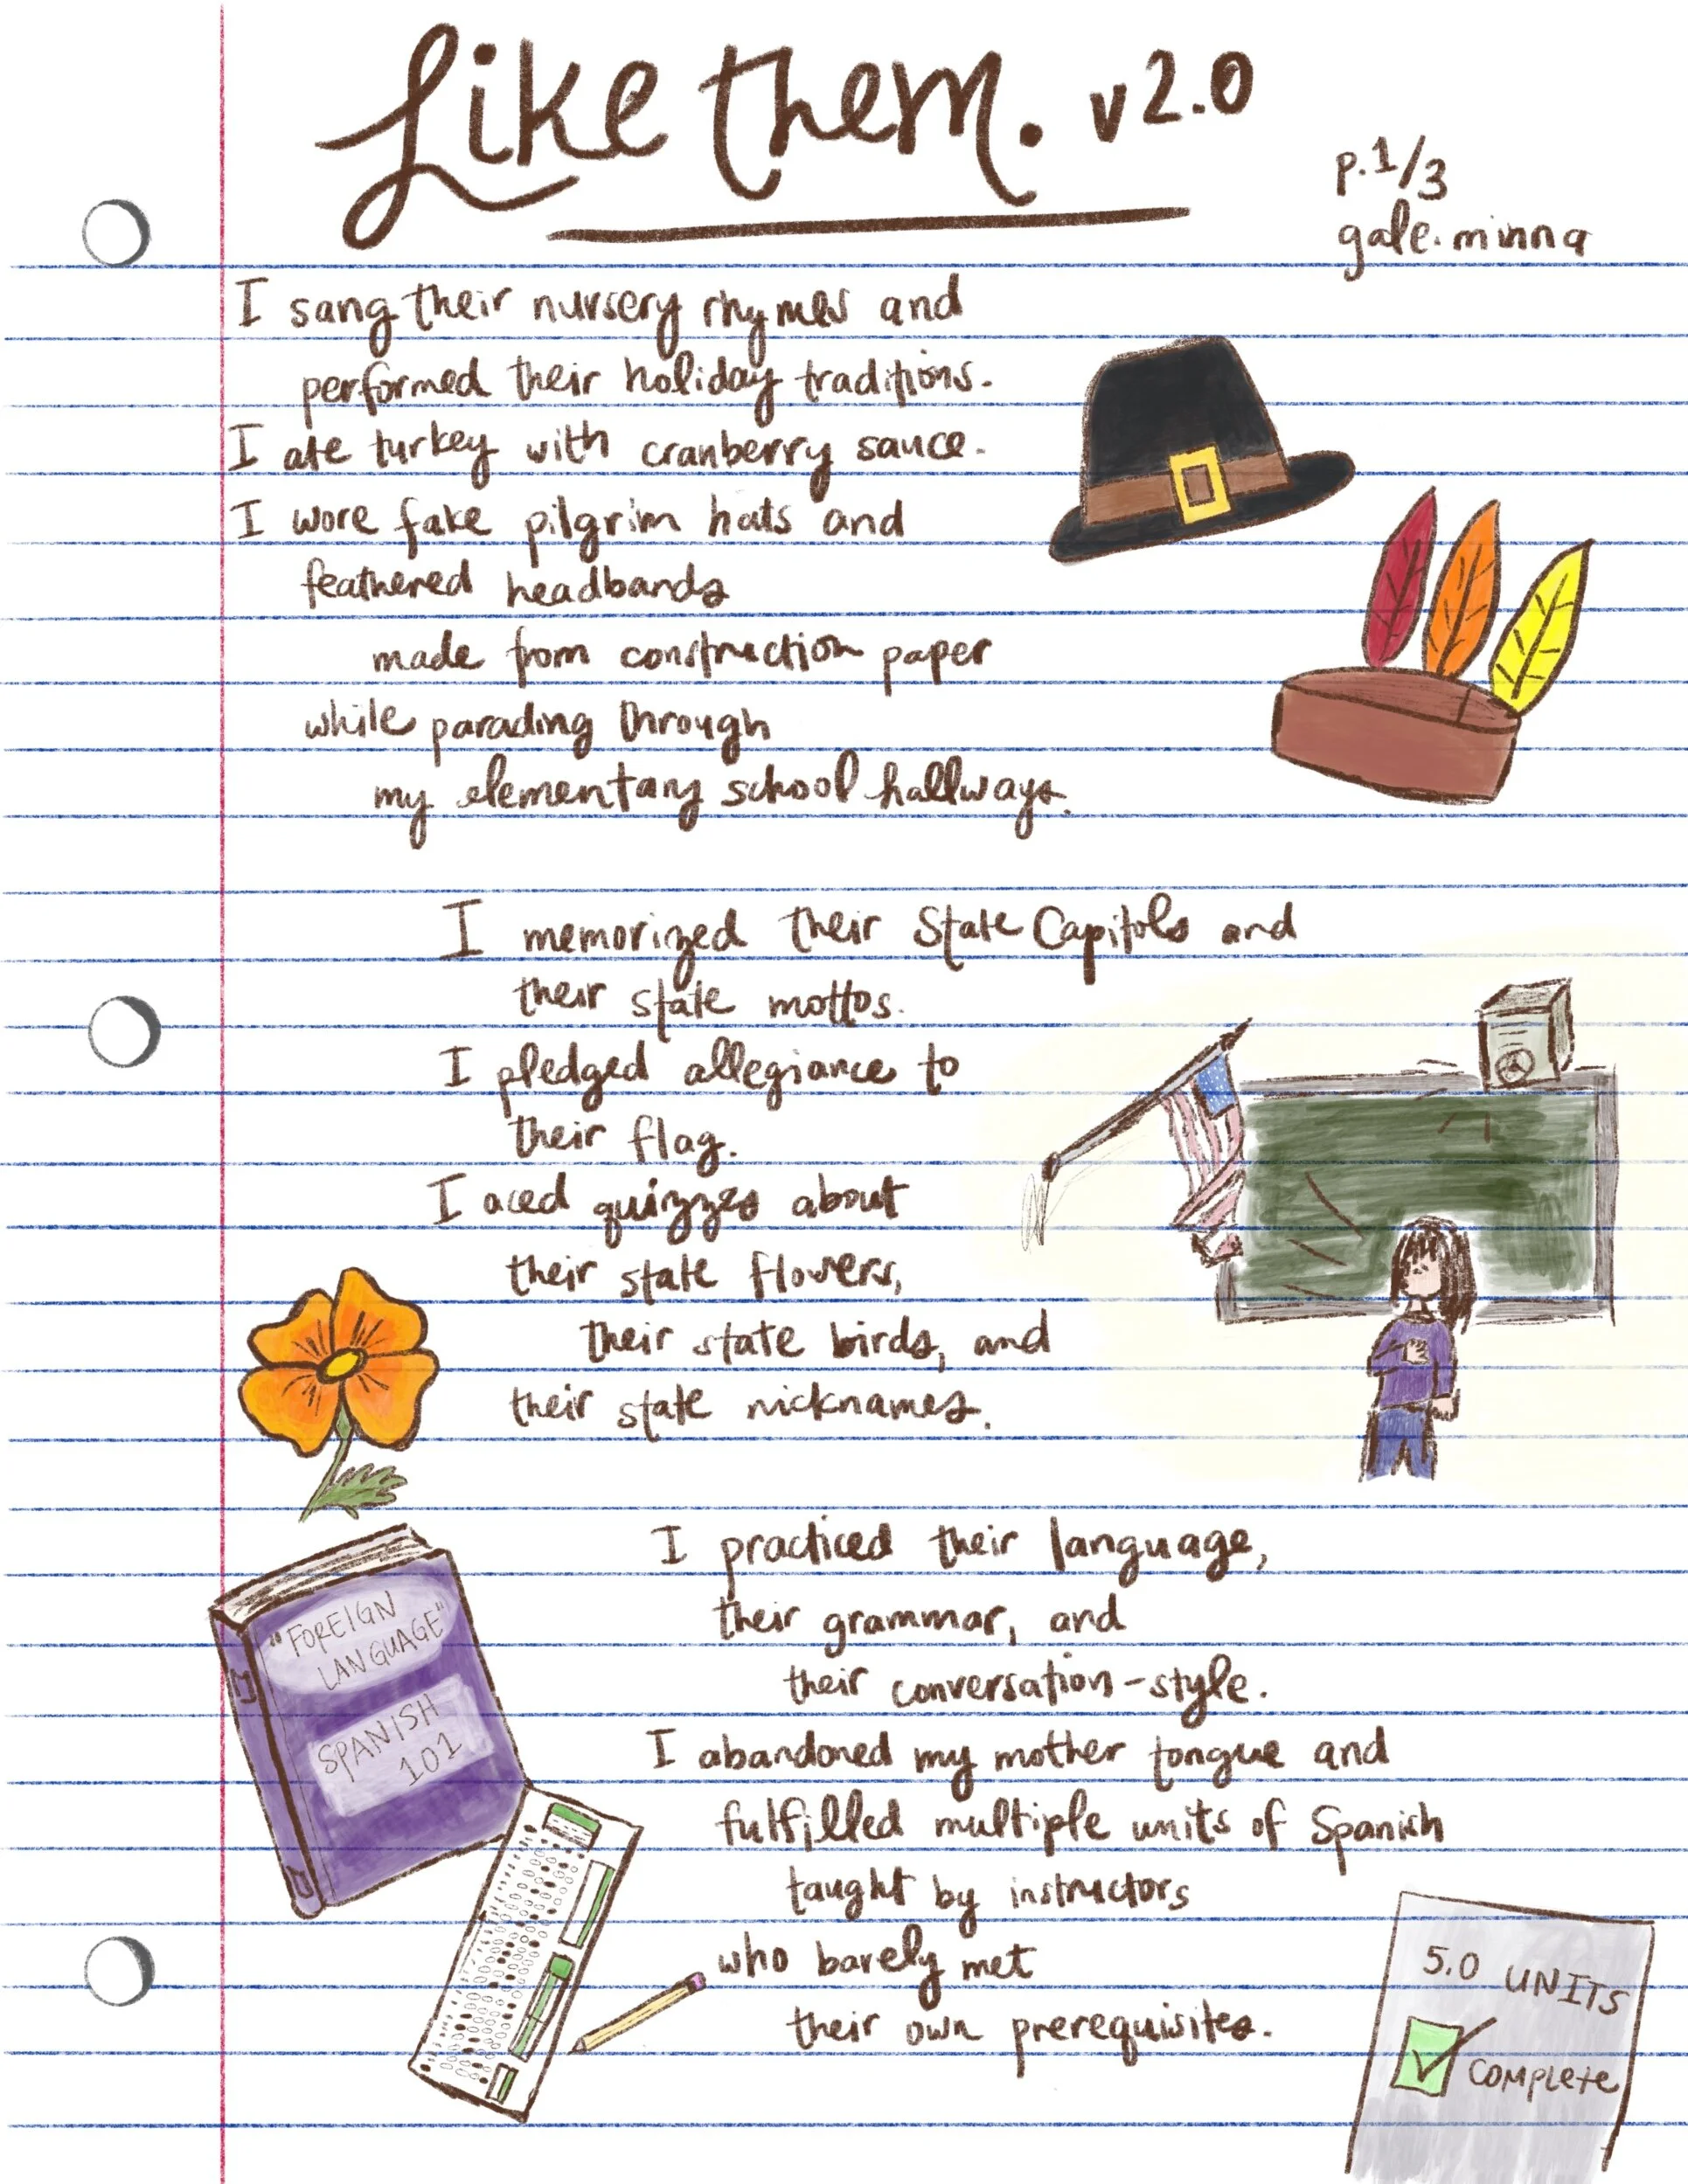 Like them. v2.0
p.1/3
gale.minna
I sang their nursery rhymes and
performed their holiday traditions.
I ate turkey with cranberry sauce.
I wore fake pilgrim hats and
feathered headbands
made from construction paper
while parading through
my elementary school hallways.
I memorized their State Capitols and
their state mottos.
I pledged allegiance to
their flag.
I aced quizzes about
their state flowers,
their state birds, and
their state nicknames.
I practiced their language,
their grammar, and
their conversation-style.
I abandoned my mother tongue and
fulfilled multiple units of Spanish
taught by instructors
who barely met
their own prerequisites.
"FOREIGN
LANGUAGE"
SPANISH
101
5.0 UNITS
COMPLETE